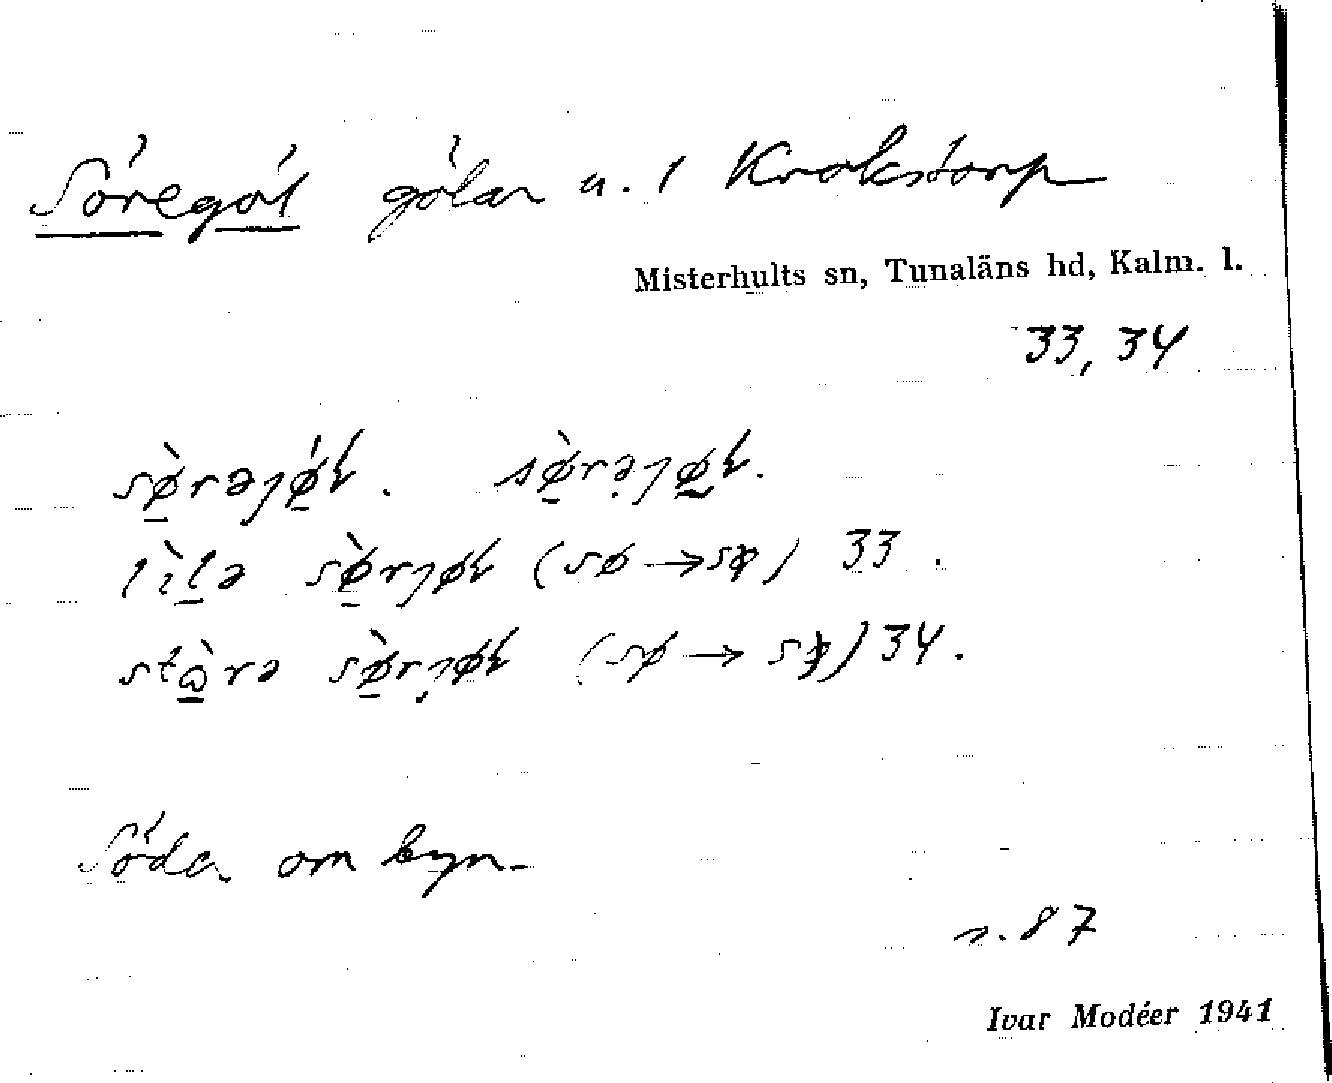 Söregöl gölar u. t Krokstorp
Misterhults sn, Tunaläns hd, Kalm. l.
33, 34
sø̱̀rəjǿ̱ɫ. sø̱̀rə̣jø̱ɫ.
lìḻə sø̱̀rjøɫ (sø → sφ) 33.
stɷ̱̀rə sø̱̀rj̣øɫ (sø → sφ) 34.
Söder om byn.
s. 87
Ivar Modéer 1941